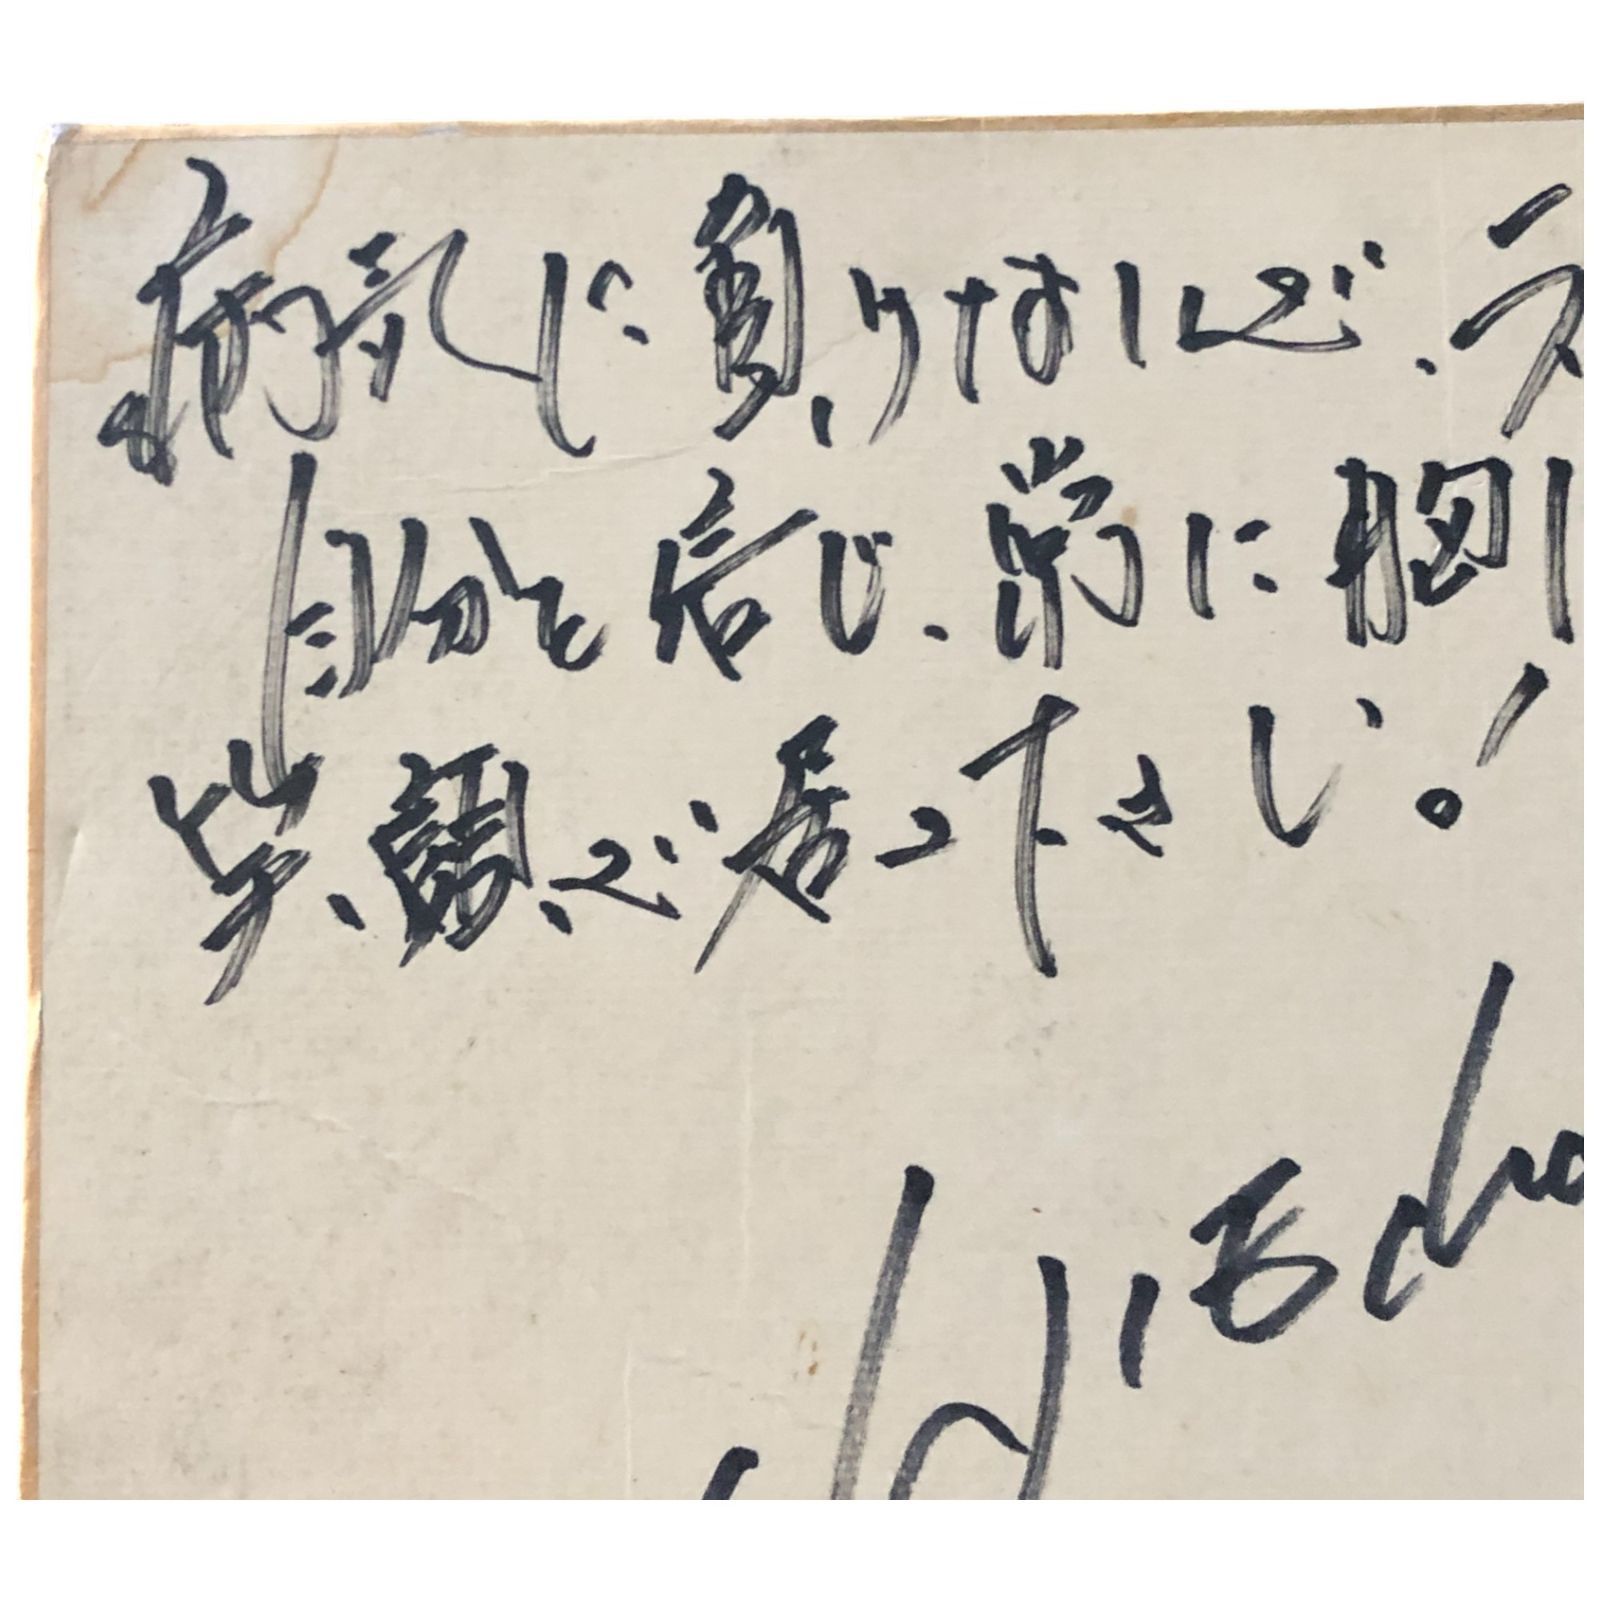 病気に負けないで、
自分を信じ、常に胸に
笑顔で居て下さい!